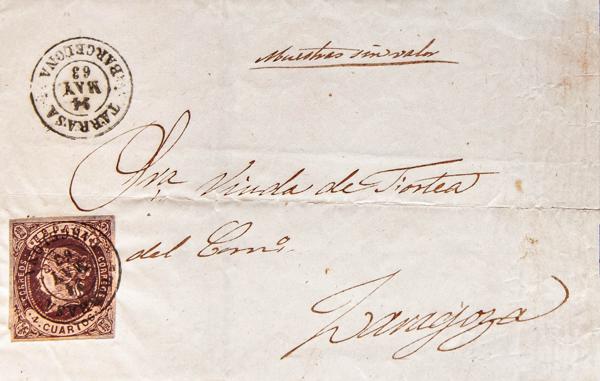 TARRASA
14
MAY
63
(BARCELONA)
Muestras sin valor
Sra Viuda de Tortea
del Comº
Zaragoza
ESPAÑA
CORREOS CORREOS
4 CUARTOS
TARRASA